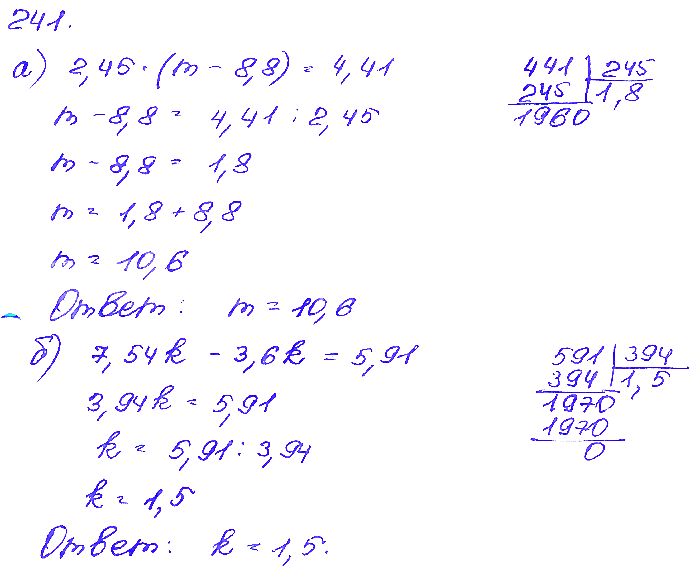 241.
а) 2,45 · (m - 8,8) = 4,41
m - 8,8 = 4,41 : 2,45
m - 8,8 = 1,8
m = 1,8 + 8,8
m = 10,6
Ответ: m = 10,6
441 | 245
245 | 1,8
1960
б) 7,54k - 3,6k = 5,91
3,94k = 5,91
k = 5,91 : 3,94
k = 1,5
Ответ: k = 1,5.
591 | 394
394 | 1,5
1970
1970
0